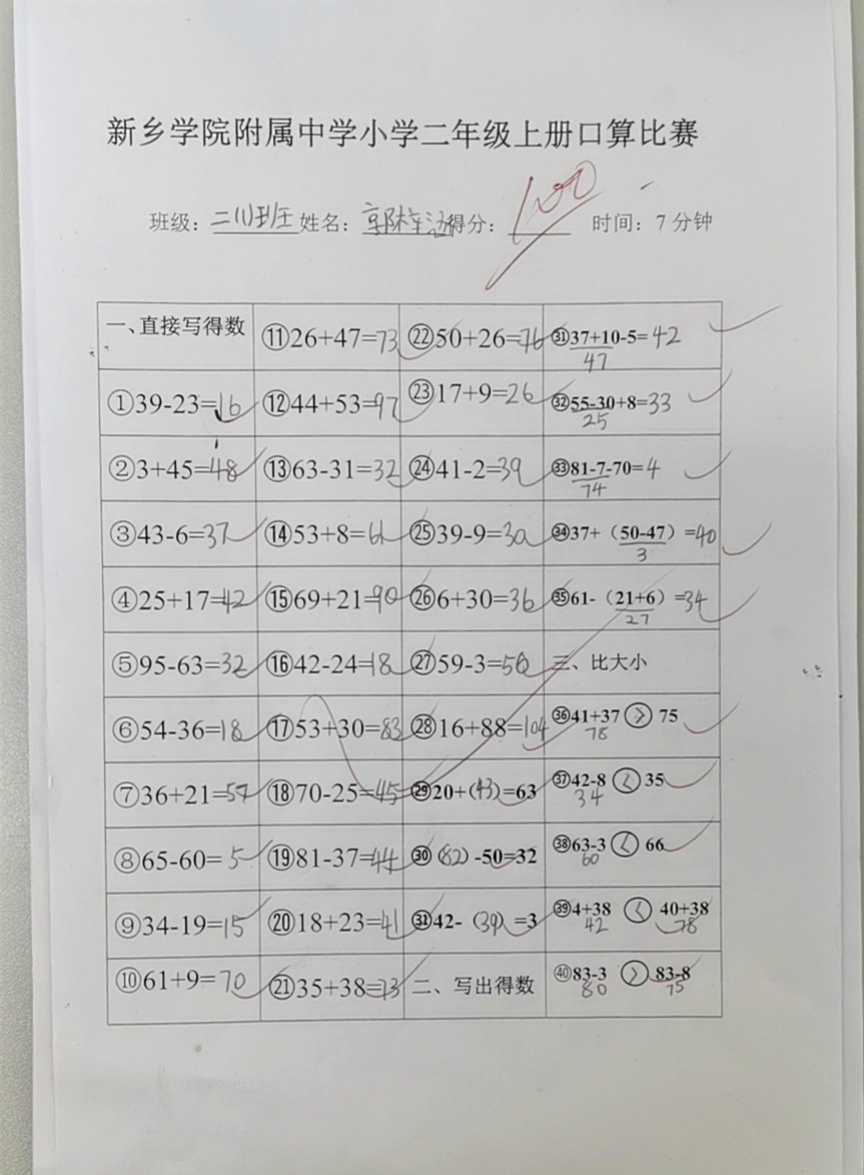 新乡学院附属中学小学二年级上册口算比赛
班级：二(1)班 姓名：郭梓涵 得分：100 时间：7分钟
一、直接写得数 ⑪26+47=73 ㉒50+26=76 ㉛37+10-5=42
47
①39-23=16 ⑫44+53=97 ㉓17+9=26 ㉜55-30+8=33
25
②3+45=48 ⑬63-31=32 ㉔41-2=39 ㉝81-7-70=4
74
③43-6=37 ⑭53+8=61 ㉕39-9=30 ㉞37+（50-47）=40
3
④25+17=42 ⑮69+21=90 ㉖6+30=36 ㉟61-（21+6）=34
27
⑤95-63=32 ⑯42-24=18 ㉗59-3=56 三、比大小
⑥54-36=18 ⑰53+30=83 ㉘16+88=104 ㊱41+37 > 75
78
⑦36+21=57 ⑱70-25=45 ㉙20+(43)=63 ㊲42-8 < 35
34
⑧65-60=5 ⑲81-37=44 ㉚(82)-50=32 ㊳63-3 < 66
60
⑨34-19=15 ⑳18+23=41 ㉛42-(39)=3 ㊴4+38 < 40+38
42 78
⑩61+9=70 ㉑35+38=73 二、写出得数 ㊵83-3 > 83-8
80 75